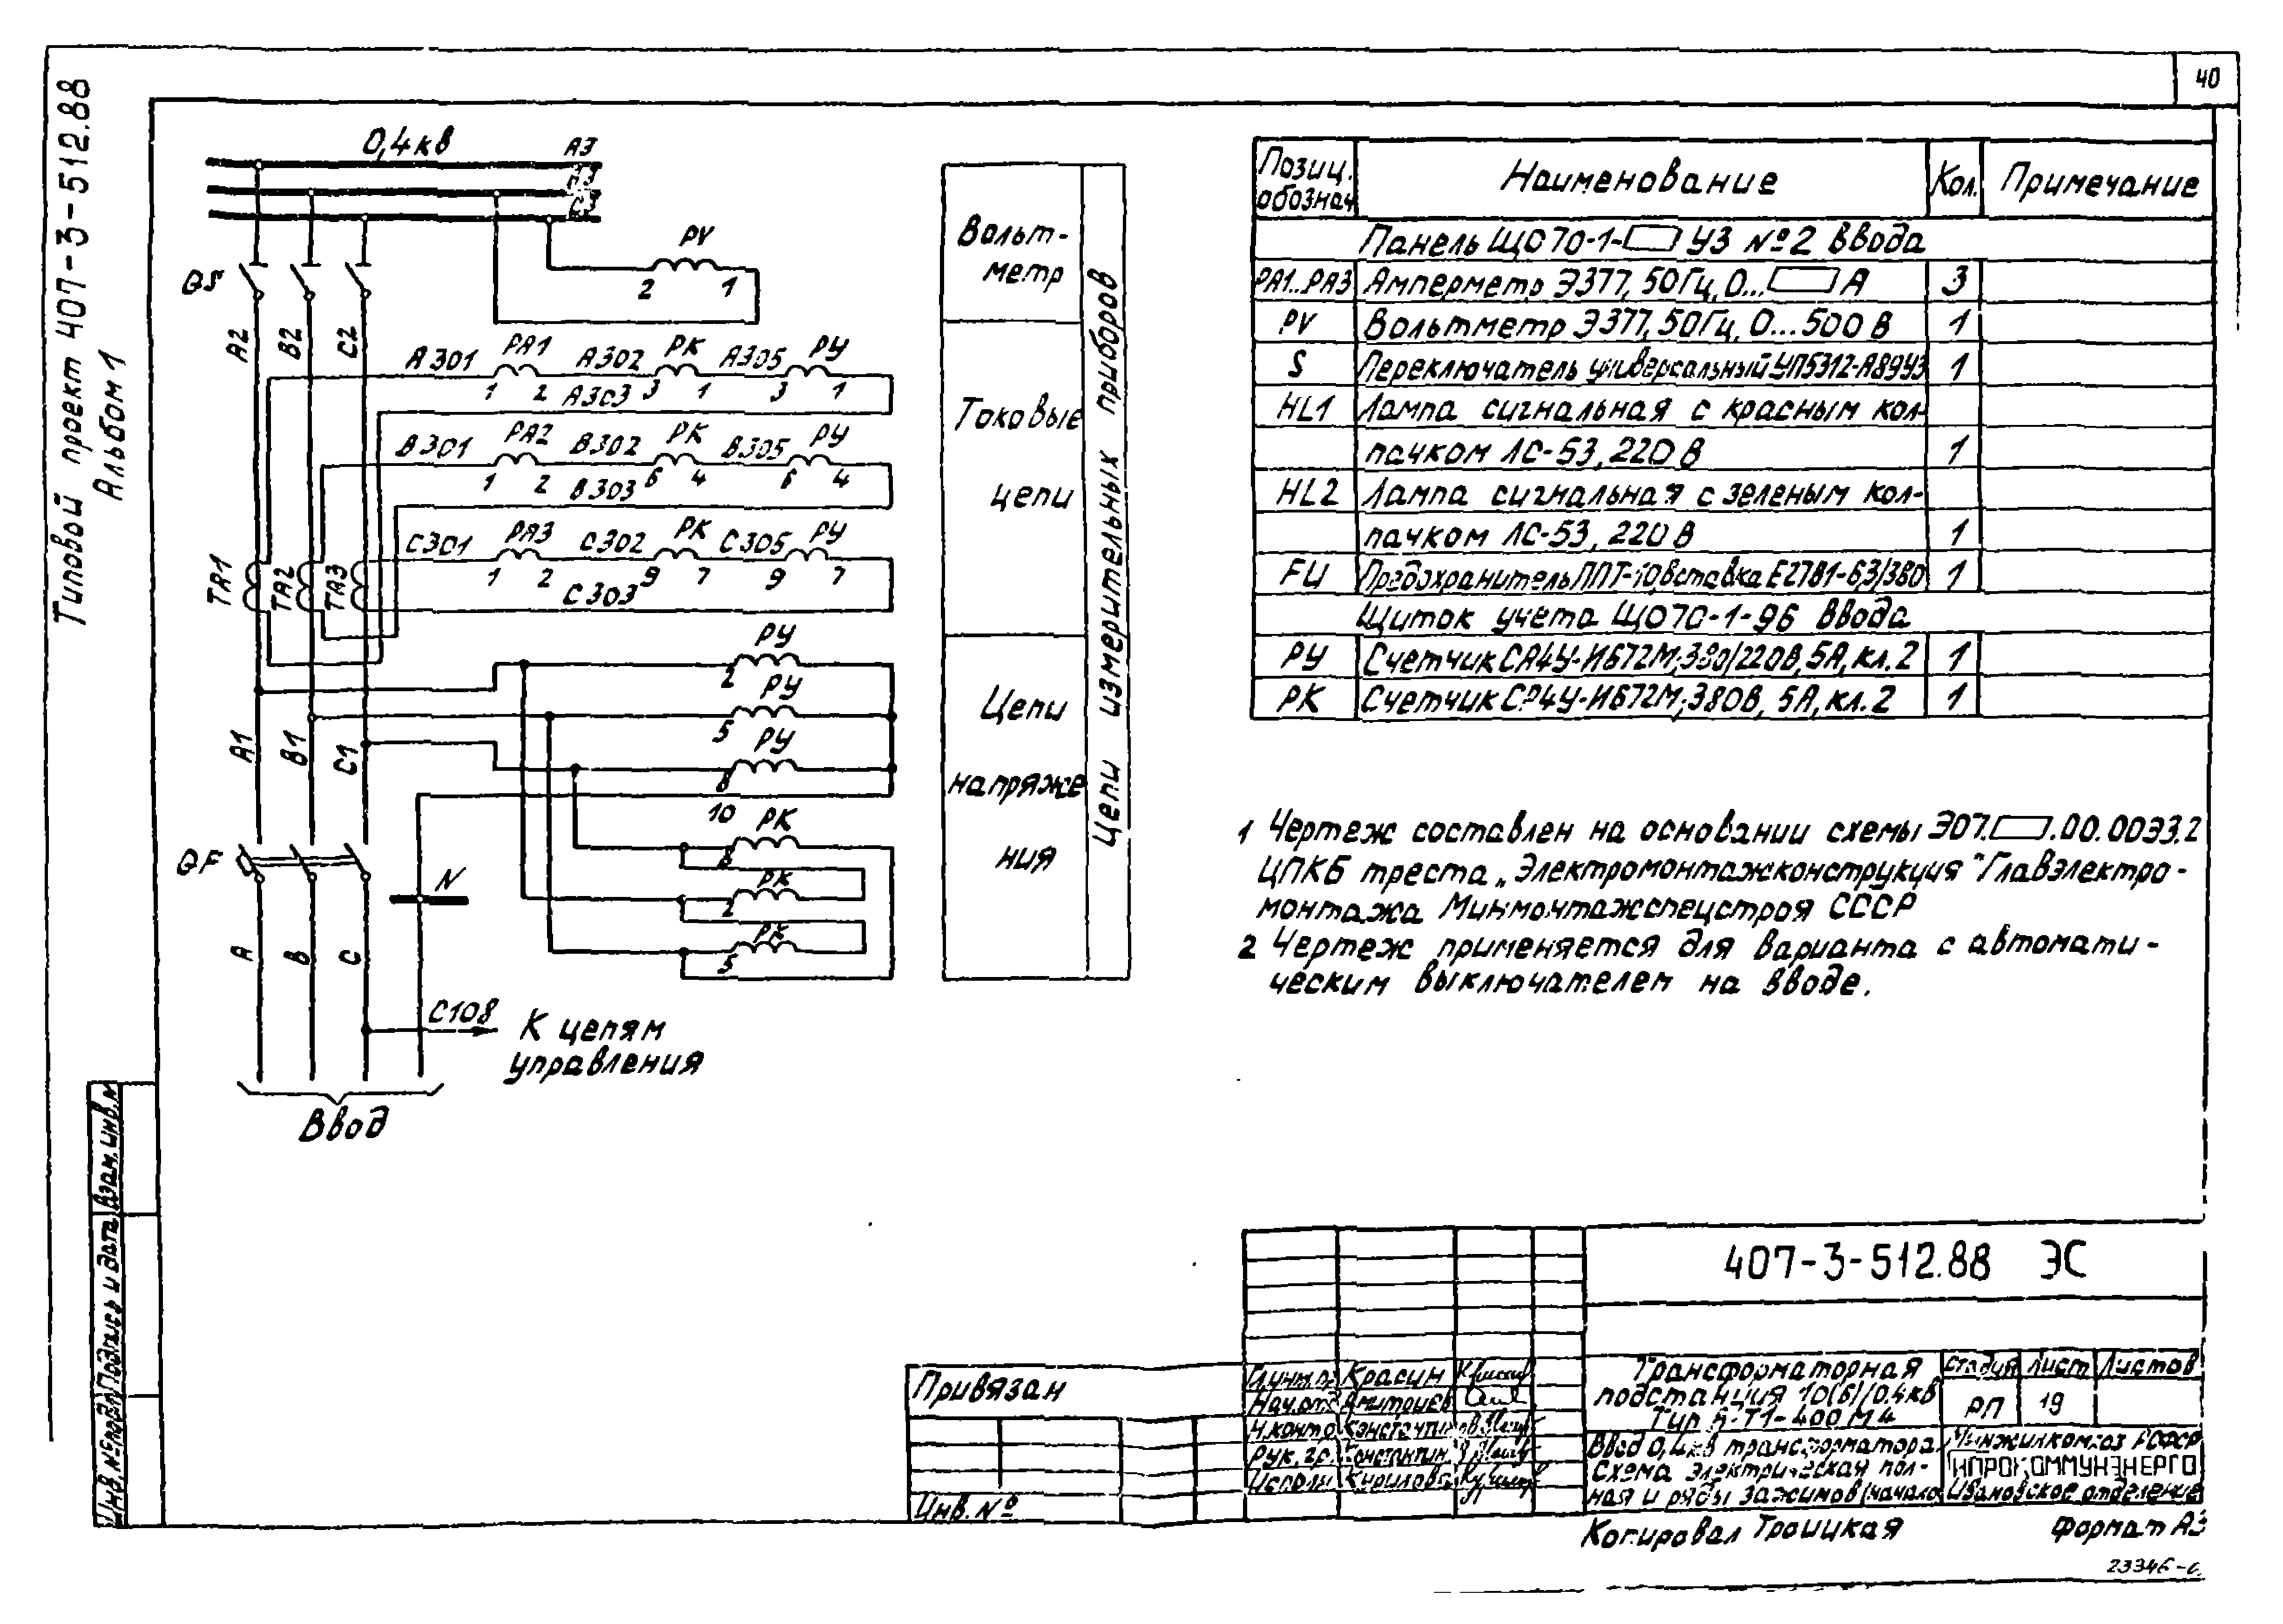 40
Типовой проект 407-3-512.88
Альбом 1
0,4кв
А3
В3
С3
PV
2 1
QS
А2 В2 С2
А301 РА1 А302 РК А305 РУ
1 2 А303 3 1 3 1
В301 РА2 В302 РК В305 РУ
1 2 В303 6 4 6 4
С301 РА3 С302 РК С305 РУ
1 2 С303 9 7 9 7
ТА1 ТА2 ТА3
РУ
2
РУ
5
РУ
8
10 РК
8
РК
2
РК
5
А1 В1 С1
QF
N
А В С
С108
К цепям
управления
Ввод
Вольт-
метр
Токовые
цепи
Цепи
напряже
ния
Цепи измерительных приборов
Позиц. обознач. Наименование Кол. Примечание
Панель ЩО70-1-▭ У3 №2 ввода
РА1..РА3 Амперметр Э377, 50Гц, 0...▭ А 3
PV Вольтметр Э377, 50Гц, 0...500 В 1
S Переключатель универсальный УП5312-А89У3 1
HL1 Лампа сигнальная с красным кол-
пачком ЛС-53, 220 В 1
HL2 Лампа сигнальная с зеленым кол-
пачком ЛС-53, 220 В 1
FU Предохранитель ППТ-10 вставка Е27В1-6,3/380 1
Щиток учета ЩО70-1-96 ввода
РУ Счетчик СА4У-И672М, 380/220В, 5А, кл. 2 1
РК Счетчик СР4У-И672М, 380В, 5А, кл. 2 1
1 Чертеж составлен на основании схемы Э07.▭.00.00Э3.2
ЦПКБ треста „Электромонтажконструкция" Главэлектро-
монтажа Минмонтажспецстроя СССР
2 Чертеж применяется для варианта с автомати-
ческим выключателем на вводе.
Инв.№подл Подпись и дата Взам.инв.№
407-3-512.88 ЭС
Привязан
Инв.№
Гл.инж.пр. Красин
Нач.отд. Дмитриев
Н.контр Константинов
Рук.гр. Константин
Исполн Кирилова
Трансформаторная
подстанция 10(6)/0.4кв
Тип К-Т1-400 М4
Стадия Лист Листов
РП 19
Ввод 0,4кв трансформатора
Схема электрическая пол-
ная и ряды зажимов (начало
Минжилкомхоз РСФСР
ГИПРОКОММУНЭНЕРГО
Ивановское отделение
Копировал Троицкая Формат А3